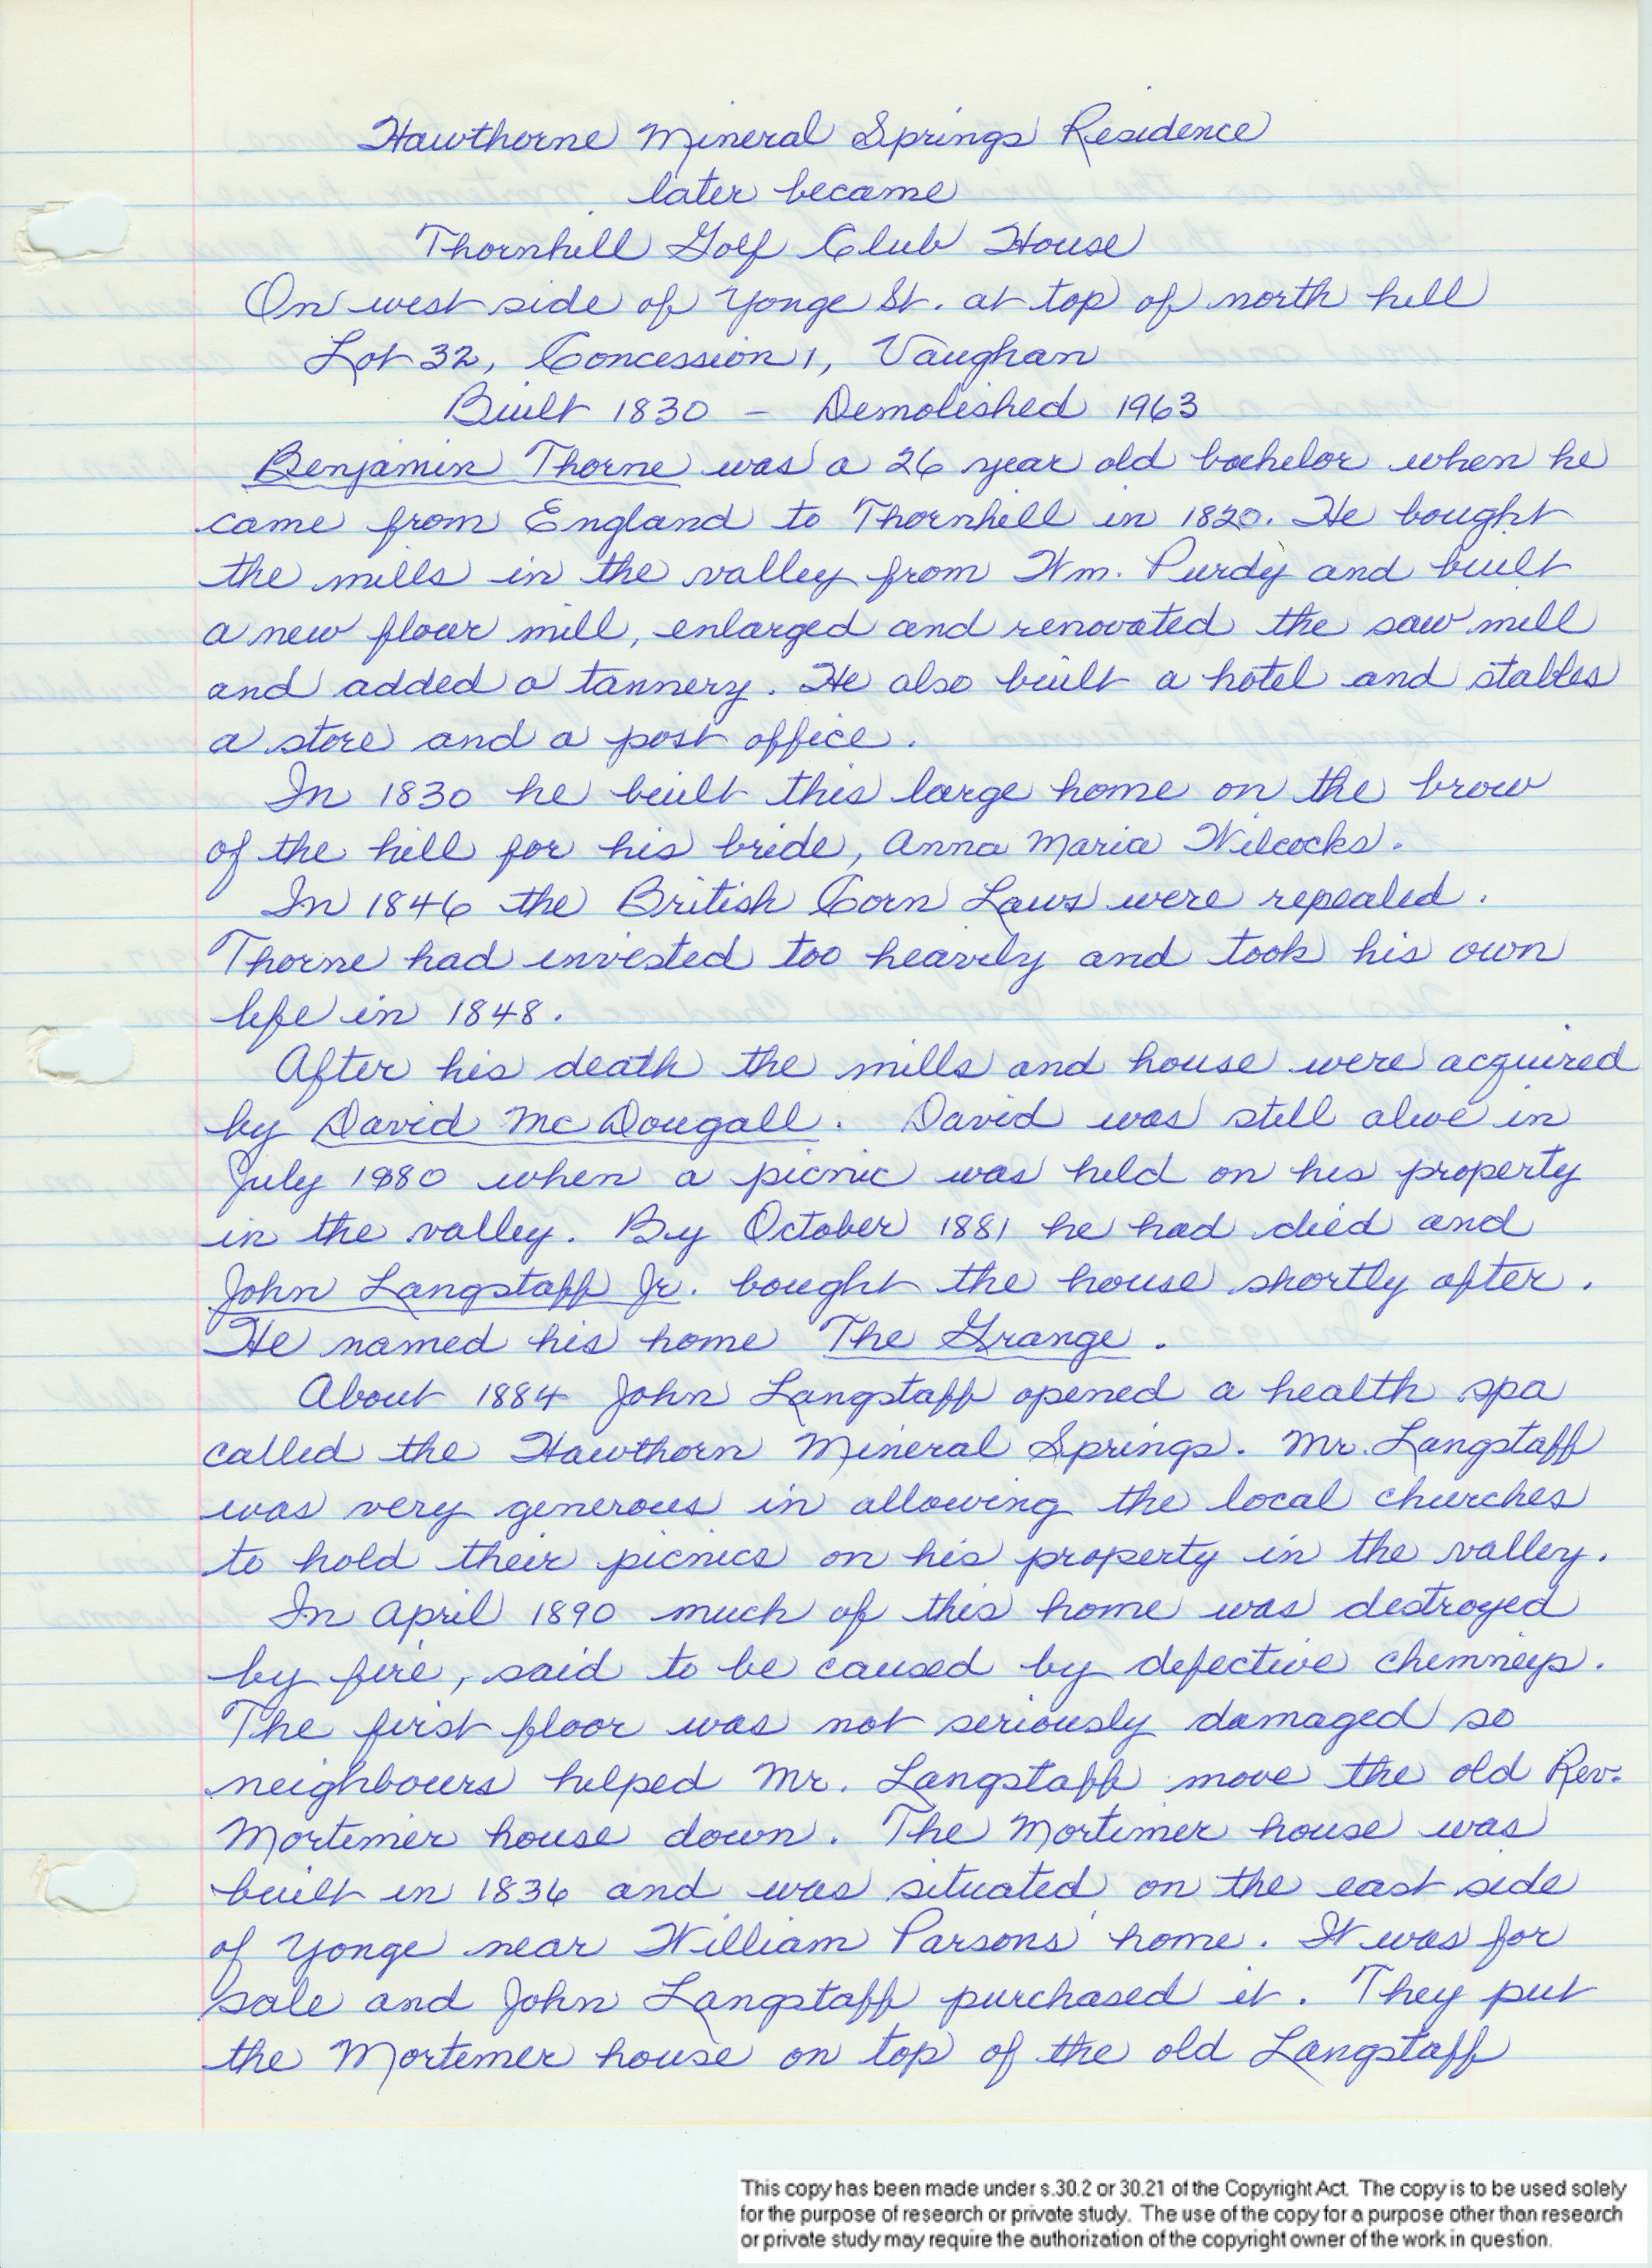 Hawthorne Mineral Springs Residence
later became
Thornhill Golf Club House
On west side of Yonge St. at top of north hill
Lot 32, Concession 1, Vaughan
Built 1830 – Demolished 1963
Benjamin Thorne was a 26 year old bachelor when he
came from England to Thornhill in 1820. He bought
the mills in the valley from Wm. Purdy and built
a new flour mill, enlarged and renovated the saw mill
and added a tannery. He also built a hotel and stables
a store and a post office.
In 1830 he built this large home on the brow
of the hill for his bride, Anna Maria Wilcocks.
In 1846 the British Corn Laws were repealed.
Thorne had invested too heavily and took his own
life in 1848.
After his death the mills and house were acquired
by David McDougall. David was still alive in
July 1880 when a picnic was held on his property
in the valley. By October 1881 he had died and
John Langstaff Jr. bought the house shortly after.
He named his home The Grange.
About 1884 John Langstaff opened a health spa
called the Hawthorn Mineral Springs. Mr. Langstaff
was very generous in allowing the local churches
to hold their picnics on his property in the valley.
In April 1890 much of this home was destroyed
by fire, said to be caused by defective chimneys.
The first floor was not seriously damaged so
neighbours helped Mr. Langstaff move the old Rev.
Mortimer house down. The Mortimer house was
built in 1836 and was situated on the east side
of Yonge near William Parsons' home. It was for
sale and John Langstaff purchased it. They put
the Mortimer house on top of the old Langstaff
This copy has been made under s.30.2 or 30.21 of the Copyright Act. The copy is to be used solely
for the purpose of research or private study. The use of the copy for a purpose other than research
or private study may require the authorization of the copyright owner of the work in question.